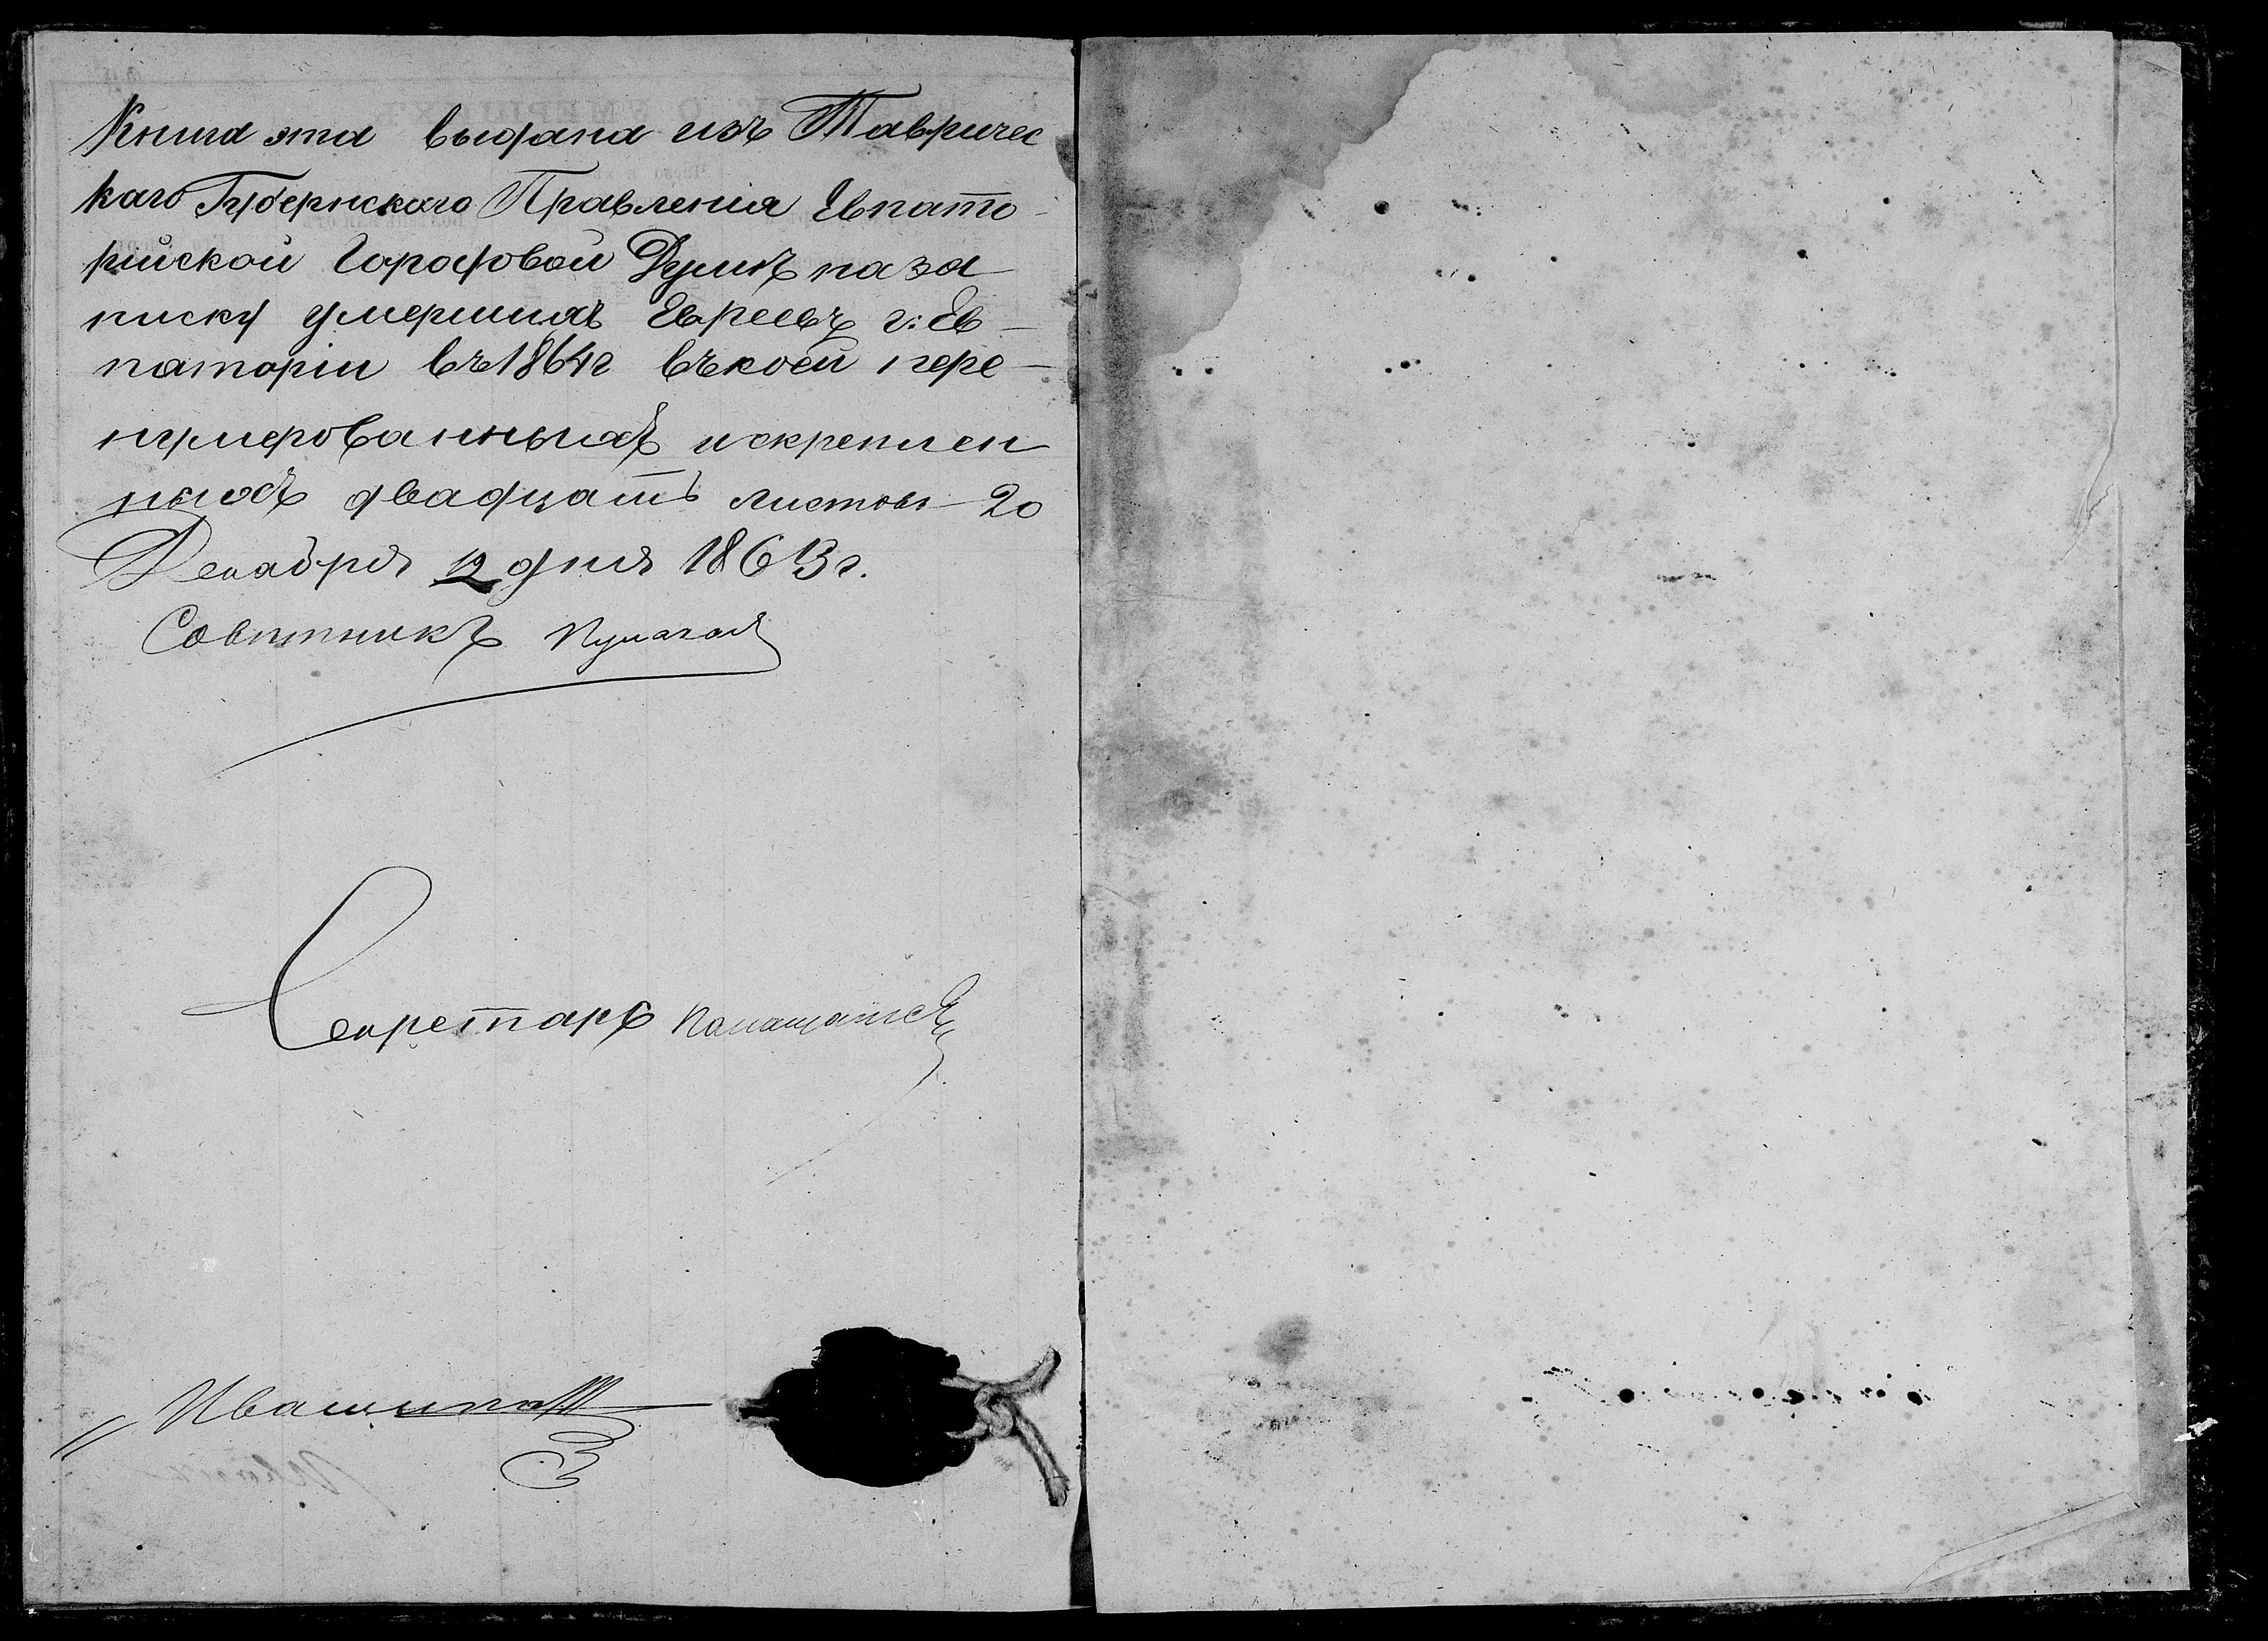 Книга эта выдана изъ Тавричес
каго Губернскаго Правленія Евпато-
рійской Городовой Думѣ на за
писку умершихъ Евреевъ г: Ев-
паторіи въ 1864 г въ коей пере-
нумерованныхъ и скреплен
ныхъ двадцать листовъ - 20
Декабря 12 дня 1863 г.
Совѣтникъ
Секретарь